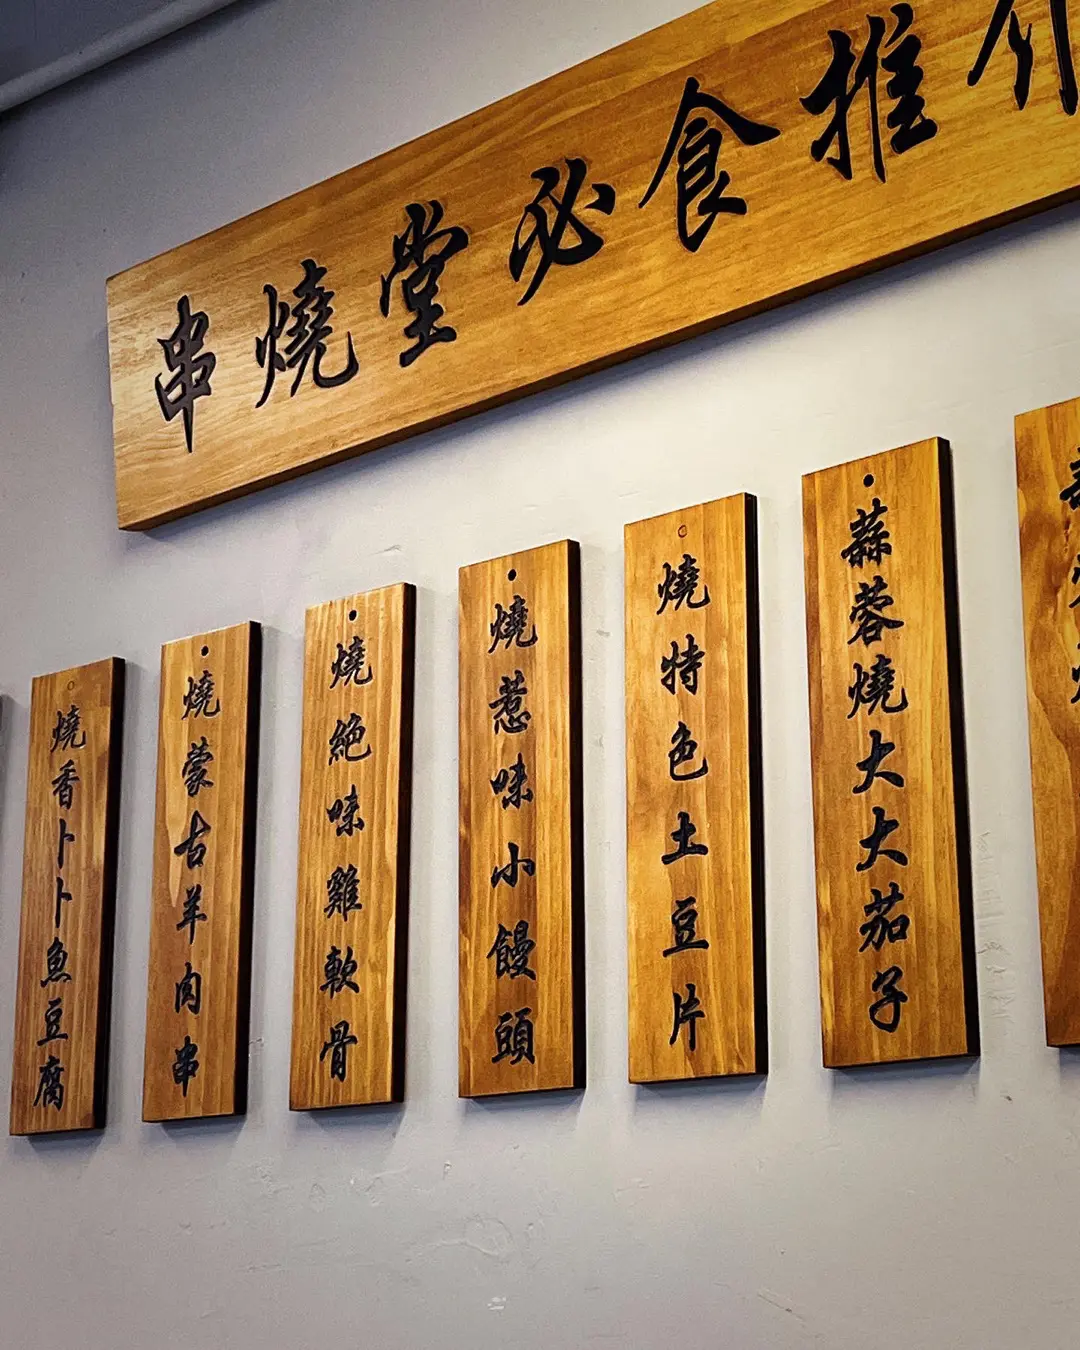 串燒堂必食推介
燒香卜卜魚豆腐
燒蒙古羊肉串
燒絕味雞軟骨
燒惹味小饅頭
燒特色土豆片
蒜蓉燒大大茄子